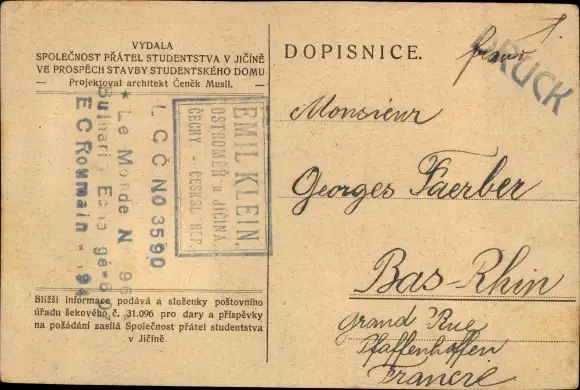 VYDALA
SPOLEČNOST PŘÁTEL STUDENTSTVA V JIČÍNĚ
VE PROSPĚCH STAVBY STUDENTSKÉHO DOMU
Projektoval architekt Čeněk Musil.
EMIL KLEIN,
OSTROMĚŘ u JIČÍNA
ČECHY - ČESKSL. REP.
L C Č NO 3590
* Le Monde N 96
E C Roumain - 94
Bližší informace podává a složenky poštovního
úřadu šekového č. 31.096 pro dary a příspěvky
na požádání zasílá Společnost přátel studentstva
v Jičíně.
DOPISNICE.
DRUCK
Monsieur
Georges Faerber
Bas-Rhin
Grand'Rue
Pfaffenhoffen
France